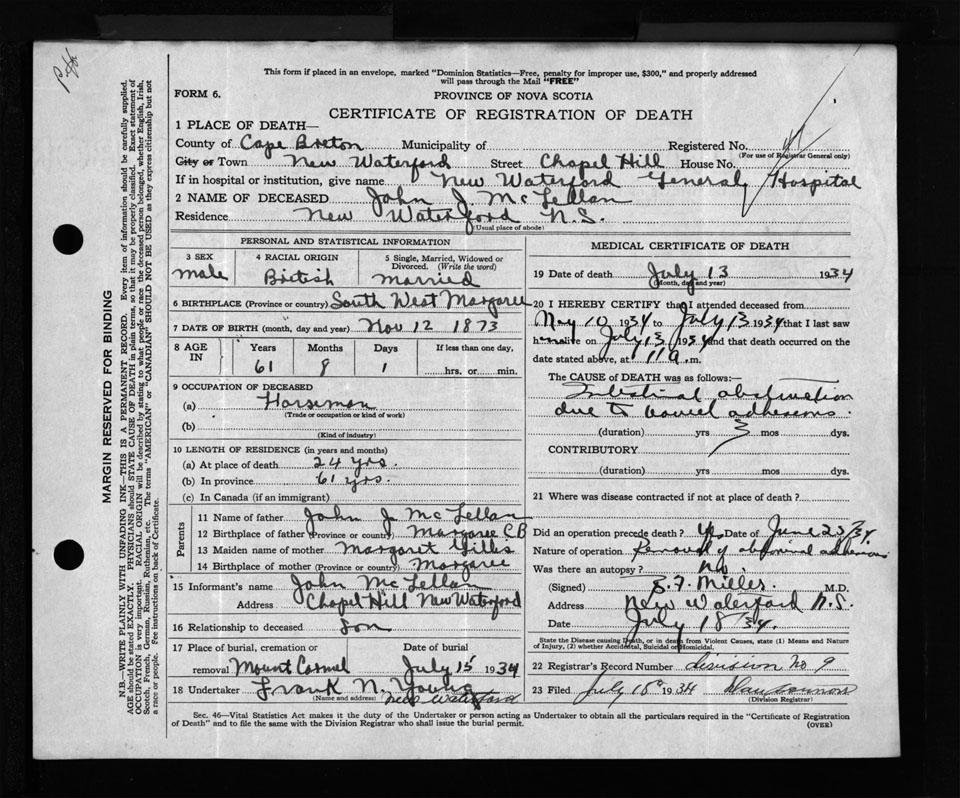 This form if placed in an envelope, marked "Dominion Statistics—Free, penalty for improper use, $300," and properly addressed
will pass through the Mail "FREE"
FORM 6.
PROVINCE OF NOVA SCOTIA
CERTIFICATE OF REGISTRATION OF DEATH
1 PLACE OF DEATH—
County of Cape Breton Municipality of Registered No.
(For use of Registrar General only)
City or Town New Waterford Street Chapel Hill House No.
If in hospital or institution, give name New Waterford General Hospital
2 NAME OF DECEASED John J McLellan
Residence New Waterford N.S.
(Usual place of abode)
PERSONAL AND STATISTICAL INFORMATION
3 SEX 4 RACIAL ORIGIN 5 Single, Married, Widowed or
Divorced. (Write the word)
male British Married
6 BIRTHPLACE (Province or country) South West Margaree
7 DATE OF BIRTH (month, day and year) Nov 12 1873
8 AGE IN Years Months Days If less than one day,
61 8 1 hrs. or min.
9 OCCUPATION OF DECEASED
(a) Horseman
(Trade or occupation or kind of work)
(b)
(Kind of industry)
10 LENGTH OF RESIDENCE (in years and months)
(a) At place of death 24 yrs.
(b) In province 61 yrs.
(c) In Canada (if an immigrant)
Parents
11 Name of father John J McLellan
12 Birthplace of father (Province or country) Margaree CB
13 Maiden name of mother Margaret Gillis
14 Birthplace of mother (Province or country) Margaree
15 Informant's name John McLellan
Address Chapel Hill New Waterford
16 Relationship to deceased Son
17 Place of burial, cremation or Date of burial
removal Mount Carmel July 15 1934
18 Undertaker Frank N. Young
(Name and address) New Waterford
MEDICAL CERTIFICATE OF DEATH
19 Date of death July 13 1934
(Month, day and year)
20 I HEREBY CERTIFY that I attended deceased from
May 10 1934 to July 13 1934 that I last saw
him alive on July 13 1934 and that death occurred on the
date stated above, at 11 a.m.
The CAUSE of DEATH was as follows:
Intestinal obstruction
due to bowel adhesions.
(duration) yrs 3 mos dys.
CONTRIBUTORY
(duration) yrs mos dys.
21 Where was disease contracted if not at place of death?
Did an operation precede death? Yes Date of June 23/34
Nature of operation Removal of abdominal adhesions
Was there an autopsy? No
(Signed) Miller M.D.
Address New Waterford N.S.
Date July 18/34.
State the Disease causing Death, or in death from Violent Causes, state (1) Means and Nature
of Injury, (2) whether Accidental, Suicidal or Homicidal.
22 Registrar's Record Number division No 9
23 Filed July 18th 1934 Dan Connors
(Division Registrar)
Sec. 46—Vital Statistics Act makes it the duty of the Undertaker or person acting as Undertaker to obtain all the particulars required in the "Certificate of Registration
of Death" and to file the same with the Division Registrar who shall issue the burial permit.
(OVER)
MARGIN RESERVED FOR BINDING
N.B.—WRITE PLAINLY WITH UNFADING INK—THIS IS A PERMANENT RECORD. Every item of information should be carefully supplied.
AGE should be stated EXACTLY. PHYSICIANS should STATE CAUSE OF DEATH in plain terms, so that it may be properly classified. Exact statement of
OCCUPATION is very important. RACIAL ORIGIN will be described by stating to what people or race the deceased person belonged, whether English, Irish,
Scotch, French, German, Russian, Ruthenian, etc. The terms "AMERICAN" or "CANADIAN" SHOULD NOT BE USED as they express citizenship but not
a race or people. See instructions on back of Certificate.